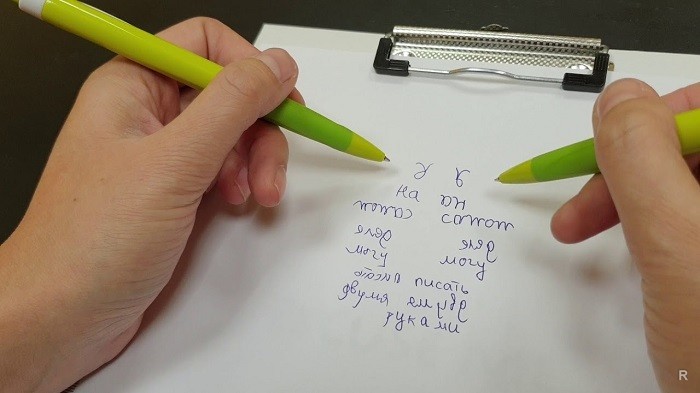 Я Я
на на
самом самом
деле деле
могу могу
писать писать
двумя двумя
руками
R